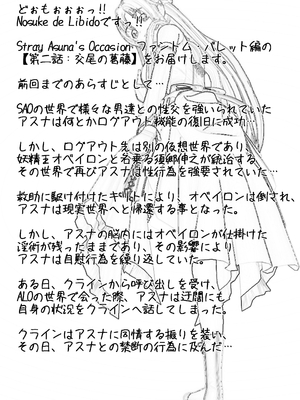 どぉもぉぉぉっ!!
Nosuke de Libidoですっ!!
Stray Asuna's Occasion ファントム・パレット編の
【第二話:交尾の葛藤】をお届けします。
前回までのあらすじとして…
SAOの世界で様々な男達との性交を強いられていた
アスナは何とかログアウト機能の復旧に成功…
しかし、ログアウト先は別の仮想世界であり、
妖精王オベイロンと名乗る須郷伸之が統治する
その世界で再びアスナは性行為を強要されていた…
救助に駆け付けたキリトにより、オベイロンは倒され、
アスナは現実世界へと帰還する事となった。
しかし、アスナの脳内にはオベイロンが仕掛けた
淫術が残ったままであり、その影響により
アスナは自慰行為を繰り返していた。
ある日、クラインから呼び出しを受け、
ALOの世界で会った際、アスナは迂闊にも
自身の状況をクラインへ話してしまった。
クラインはアスナに同情する振りを装い、
その日、アスナとの禁断の行為に及んだ…